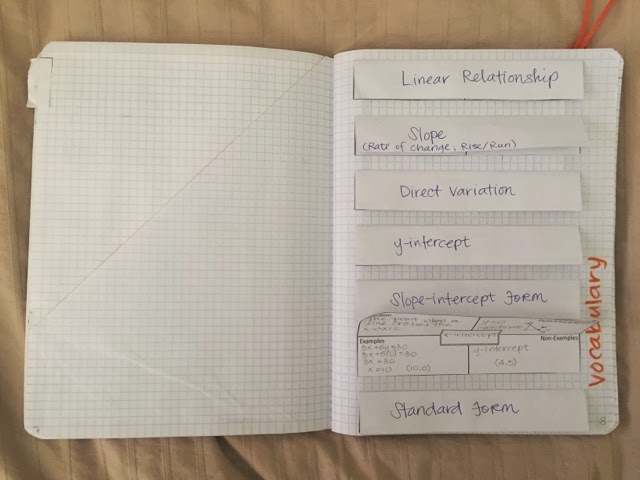 Linear Relationship
Slope
(Rate of Change, Rise/Run)
Direct Variation
y-intercept
Slope-intercept Form
The point where a
line crosses the
x-axis
x-intercept
Examples
Non-Examples
3x+5y=30
3x+5(0)=30
3x=30
x=10 (10,0)
y-intercept
Standard Form
vocabulary
8